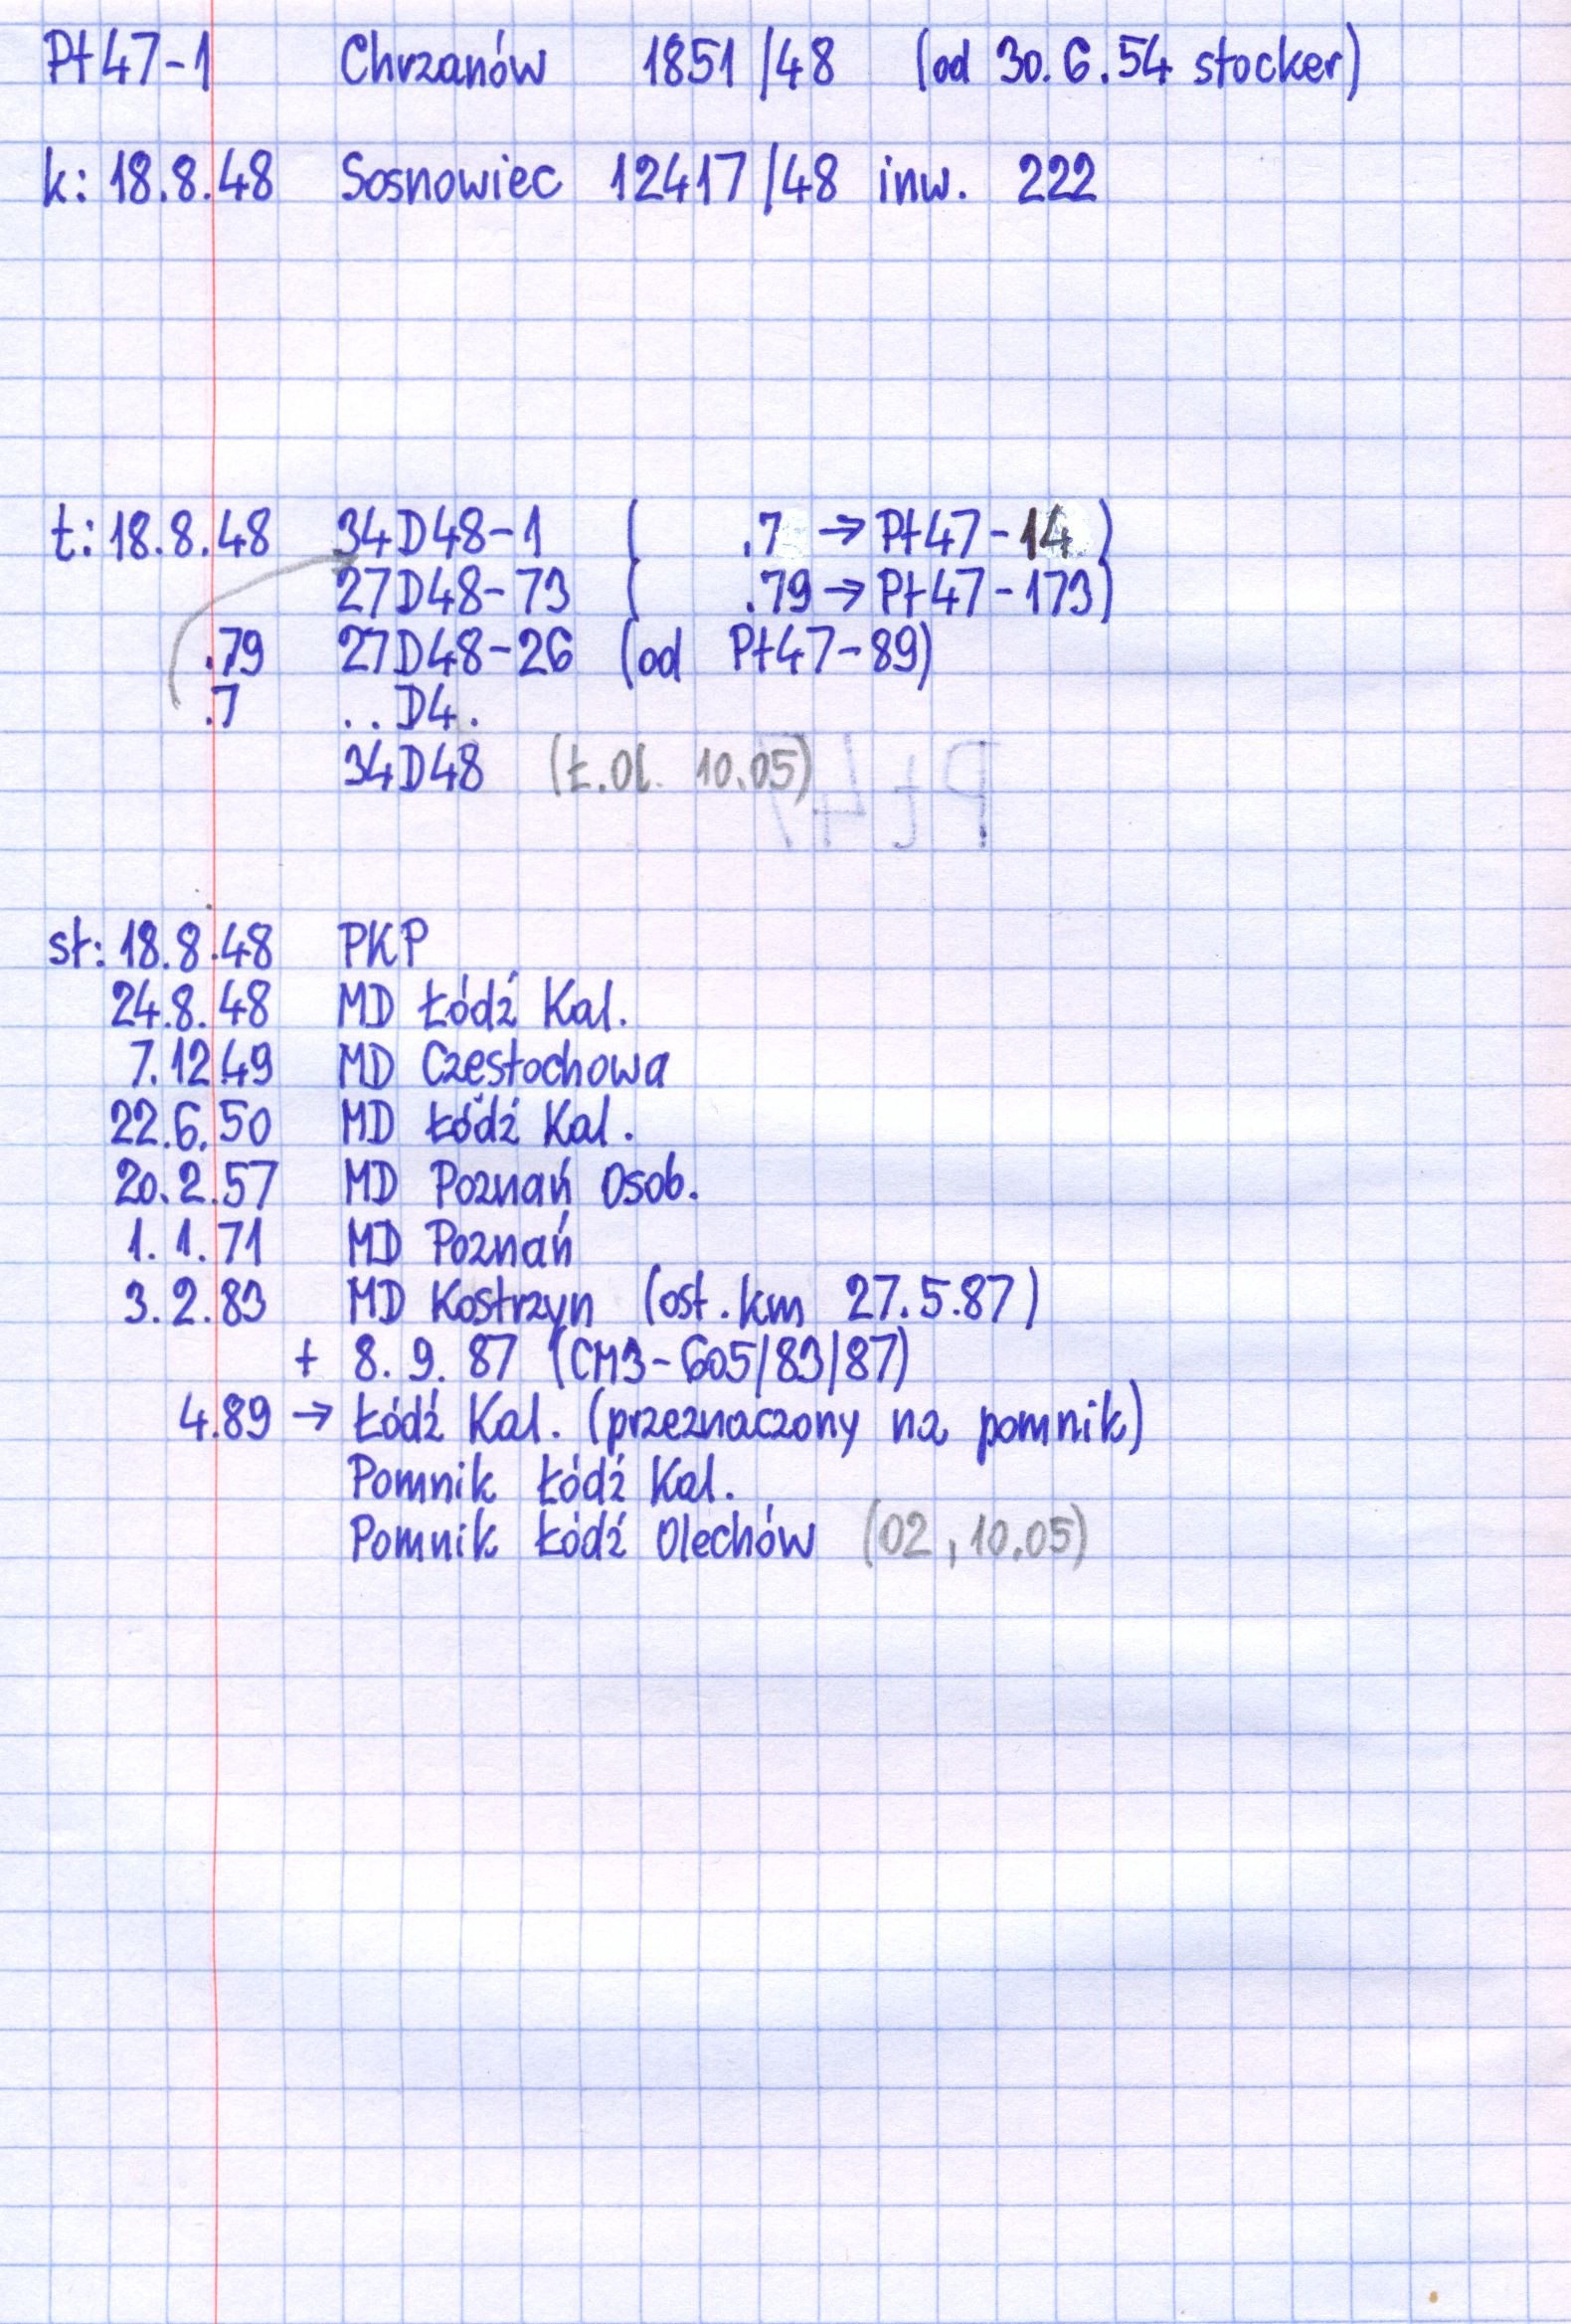 Pt47-1 Chrzanów 1851/48 (od 30.6.54 stocker)
k: 18.8.48 Sosnowiec 12417/48 inw. 222
t: 18.8.48 34D48-1 ( .7 → Pt47-14 )
27D48-73 ( .79 → Pt47-173)
.79 27D48-26 (od Pt47-89)
.7 ..D4.
34D48 (Ł.Ol. 10.05)
Pt47
sł: 18.8.48 PKP
24.8.48 MD Łódź Kal.
7.12.49 MD Częstochowa
22.6.50 MD Łódź Kal.
20.2.57 MD Poznań Osob.
1.1.71 MD Poznań
3.2.83 MD Kostrzyn (ost. km 27.5.87)
+ 8.9.87 (CM3-605/83/87)
4.89 → Łódź Kal. (przeznaczony na pomnik)
Pomnik Łódź Kal.
Pomnik Łódź Olechów (02, 10.05)